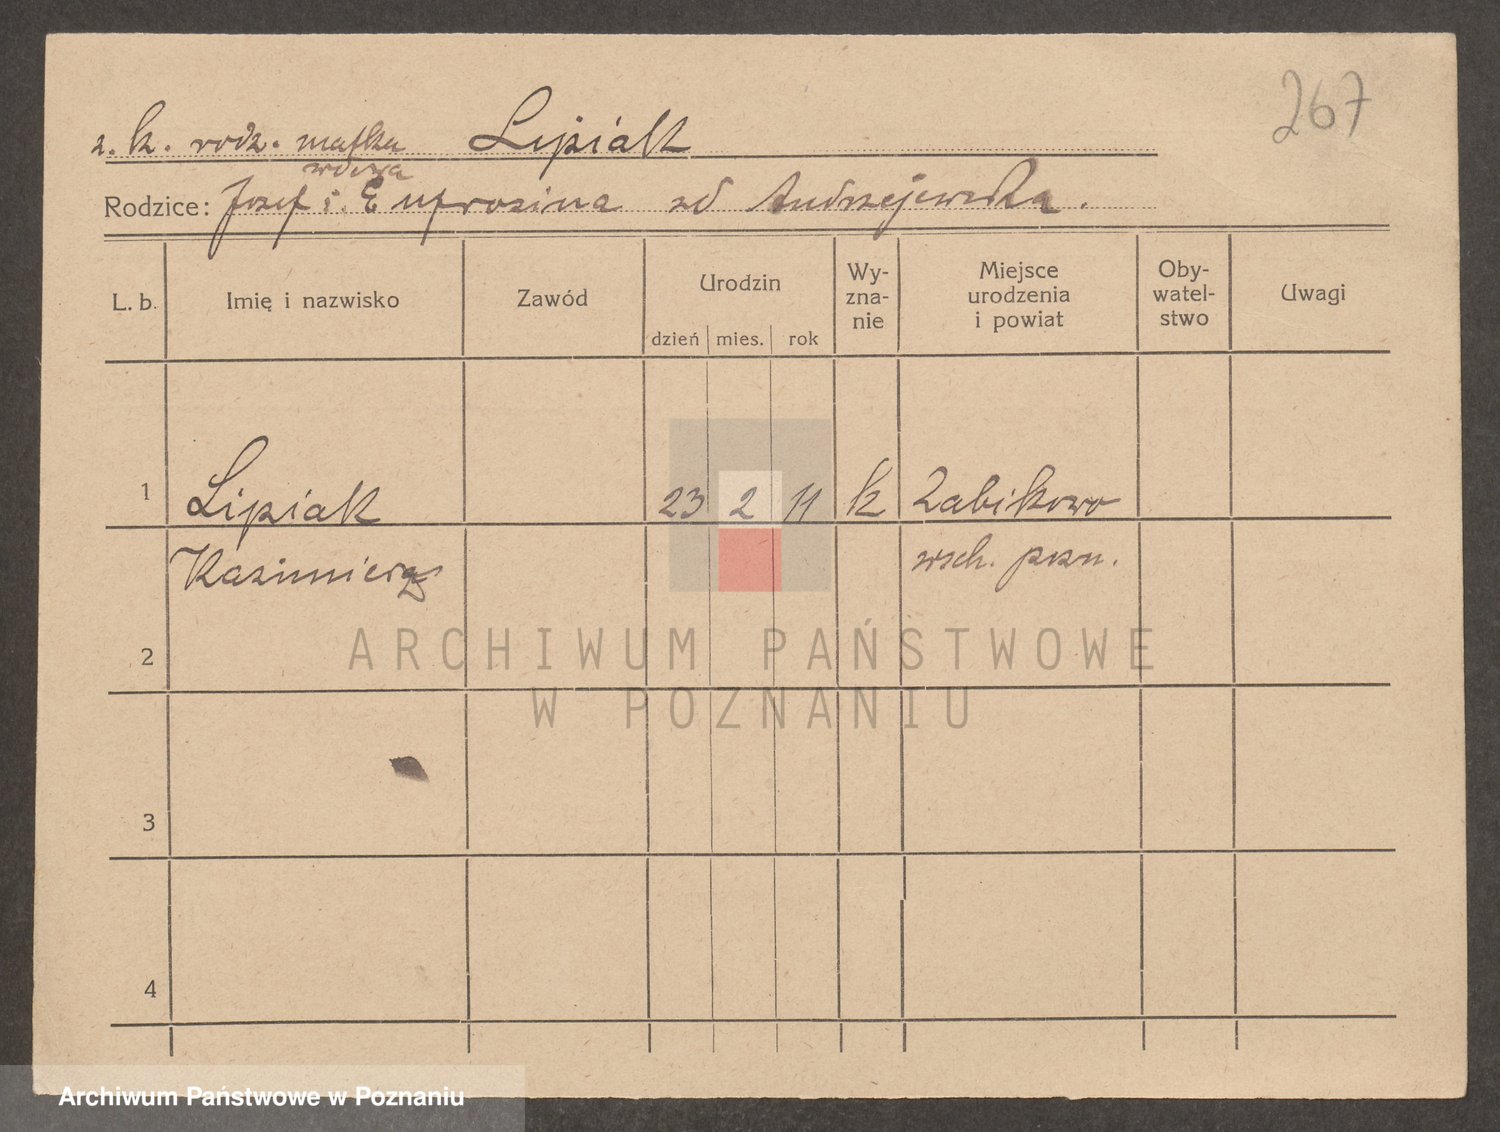 267
z. k. rodz. matka Lipiak
wdowa
Rodzice: Josef i Eufrosina zd Andrzejewska.
L. b. Imię i nazwisko Zawód Urodzin dzień mies. rok Wy-zna-nie Miejsce urodzenia i powiat Oby-watel-stwo Uwagi
1 Lipiak 23 2 11 k Zabikowo
Kazimierz wsch. pozn.
2
ARCHIWUM PAŃSTWOWE
W POZNANIU
3
4
Archiwum Państwowe w Poznaniu